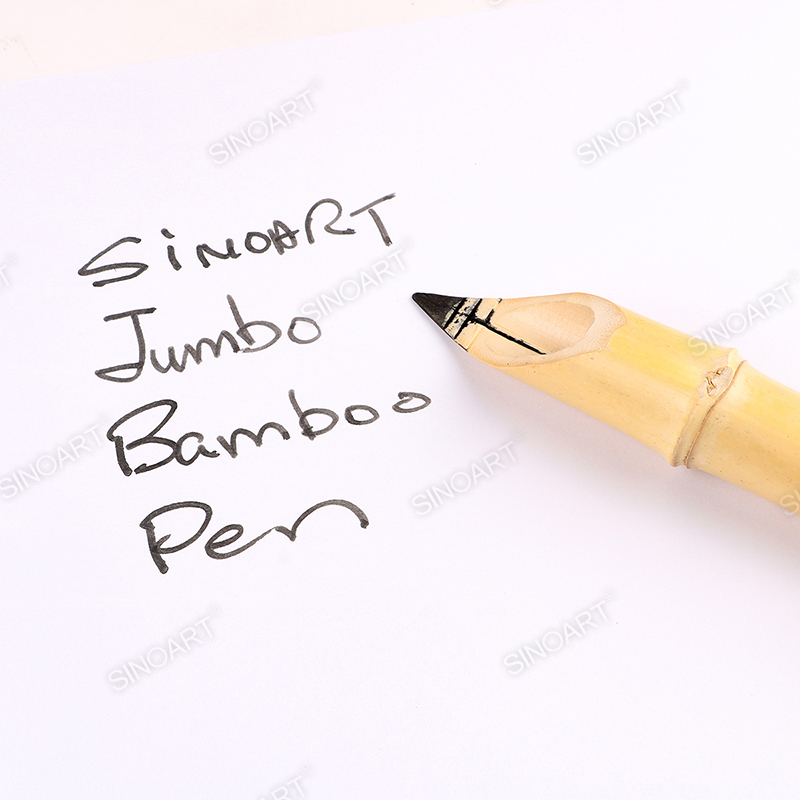 SiNOART
Jumbo
Bamboo
Pen
SINOART
SINOART
SINOART
SINOART
SINOART
SINOART
SINOART
SINOART
SINOART